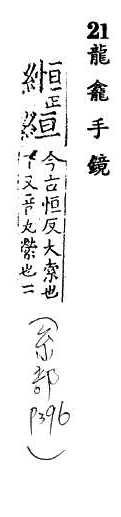 21 龍龕手鏡
縆正絙今古恒反大索也
下又音丸縈也二
(糸部 P396)